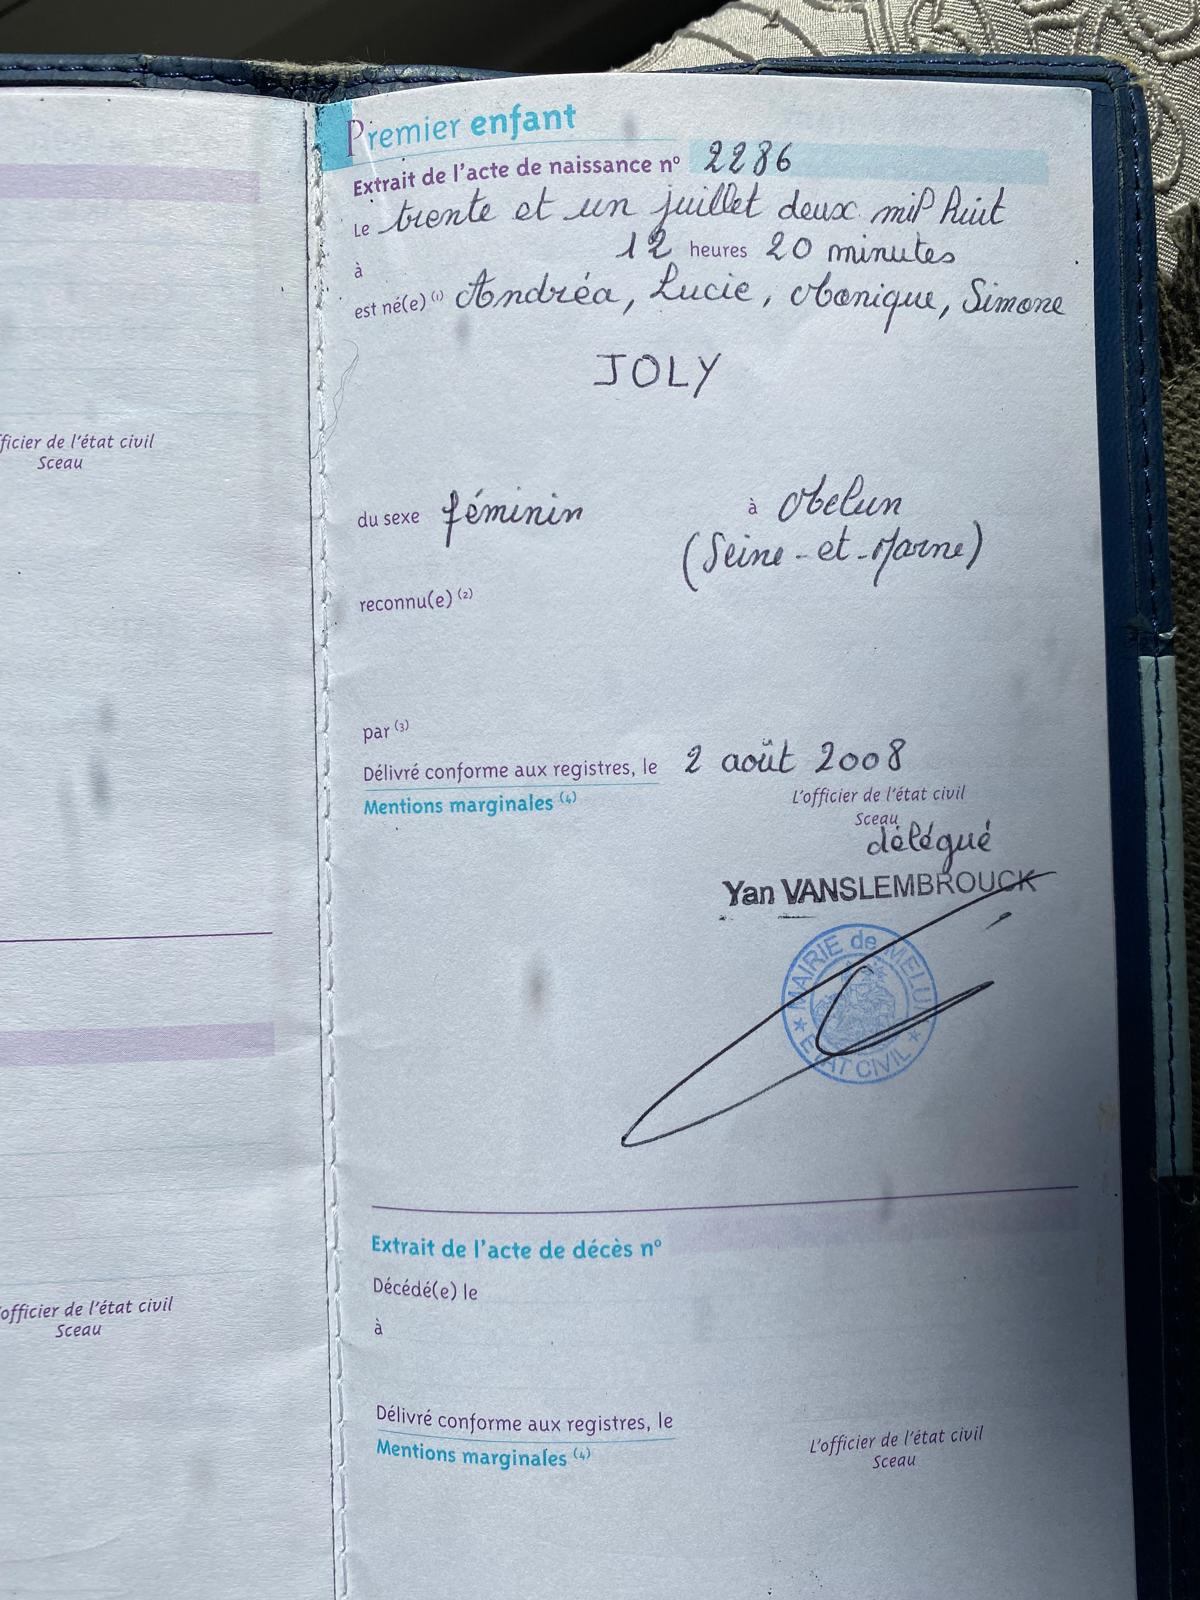 fficier de l'état civil
Sceau
officier de l'état civil
Sceau
Premier enfant
Extrait de l'acte de naissance nº 2286
Le trente et un juillet deux mil huit
à 12 heures 20 minutes
est né(e) (1) Andréa, Lucie, Monique, Simone
JOLY
du sexe féminin à Melun
(Seine-et-Marne)
reconnu(e) (2)
par (3)
Délivré conforme aux registres, le 2 août 2008
Mentions marginales (4)
L'officier de l'état civil
Sceau
délégué
Yan VANSLEMBROUCK
MAIRIE de MELUN
★ ETAT CIVIL ★
Extrait de l'acte de décès nº
Décédé(e) le
à
Délivré conforme aux registres, le
Mentions marginales (4)
L'officier de l'état civil
Sceau